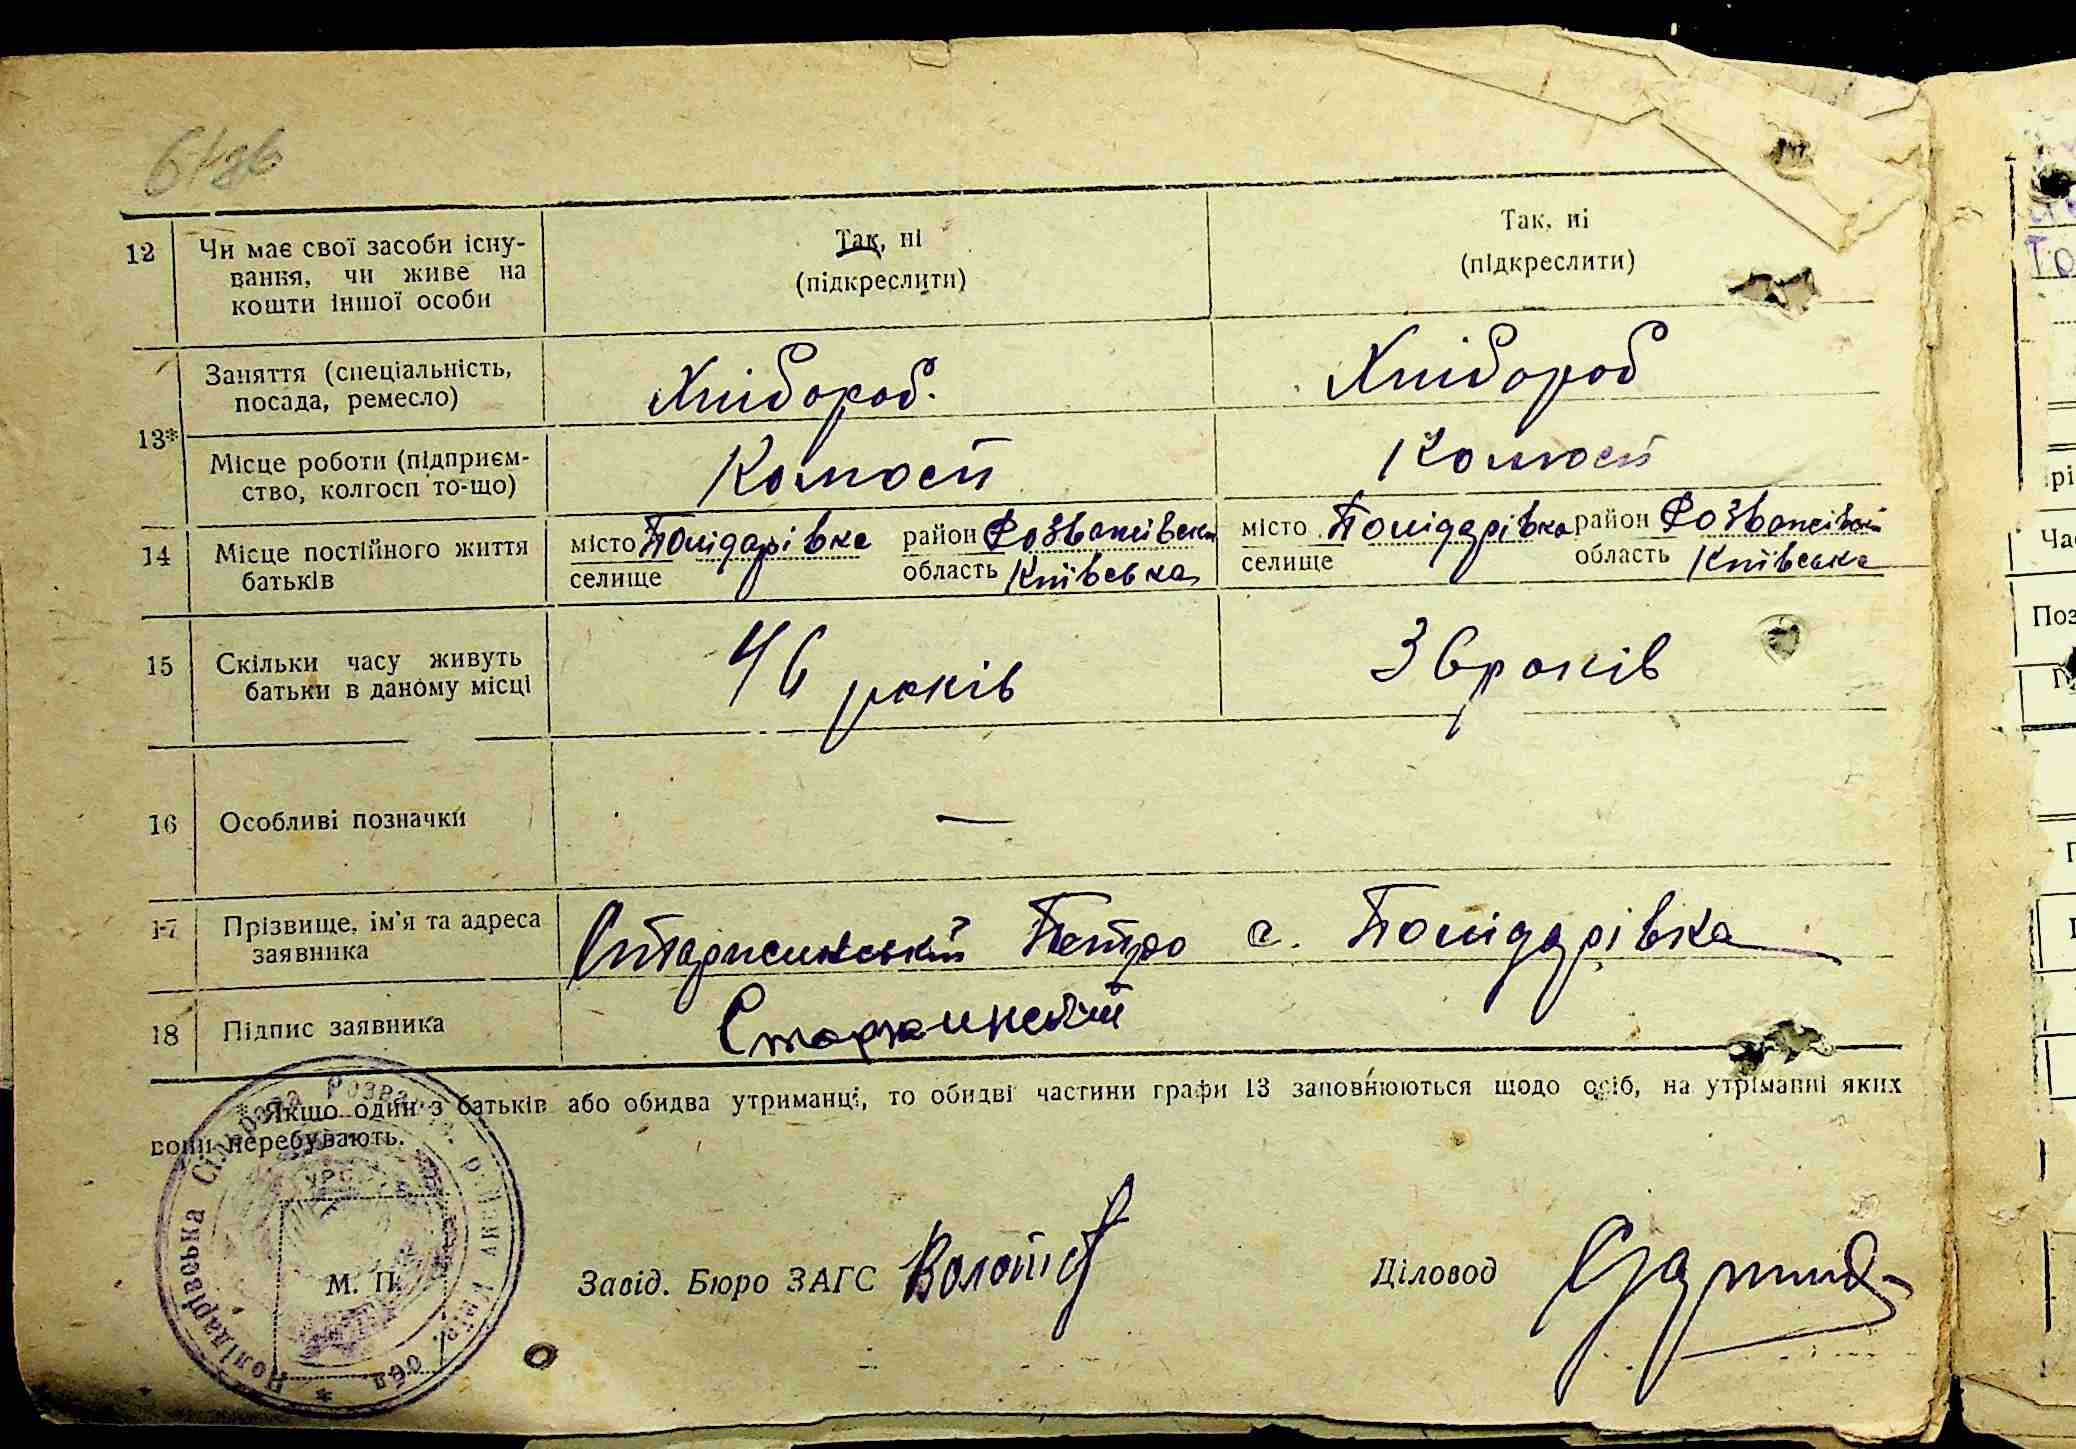 12 Чи має свої засоби існу-
вання, чи живе на
кошти іншої особи
Так, ні
(підкреслити)
Так, ні
(підкреслити)
13*
Заняття (спеціальність,
посада, ремесло)
Хлібороб.
Хлібороб
Місце роботи (підприєм-
ство, колгосп то-що)
Колгосп
Колгосп
14 Місце постійного життя
батьків
місто Полідарівка район Розважівськ
селище область Київська
місто Полідарівка район Розважівськ
селище область Київська
15 Скільки часу живуть
батьки в даному місці
46 років
36 років
16 Особливі позначки
—
17 Прізвище, ім'я та адреса
заявника
Старжинський Петро с. Полідарівка
18 Підпис заявника
Старжинский
* Якщо один з батьків або обидва утриманці, то обидві частини графи 13 заповнюються щодо осіб, на утриманні яких
вони перебувають.
Полідарівська Сільрада Розваж. району Київ. обл *
УРСР
М. П.
Завід. Бюро ЗАГС
Діловод